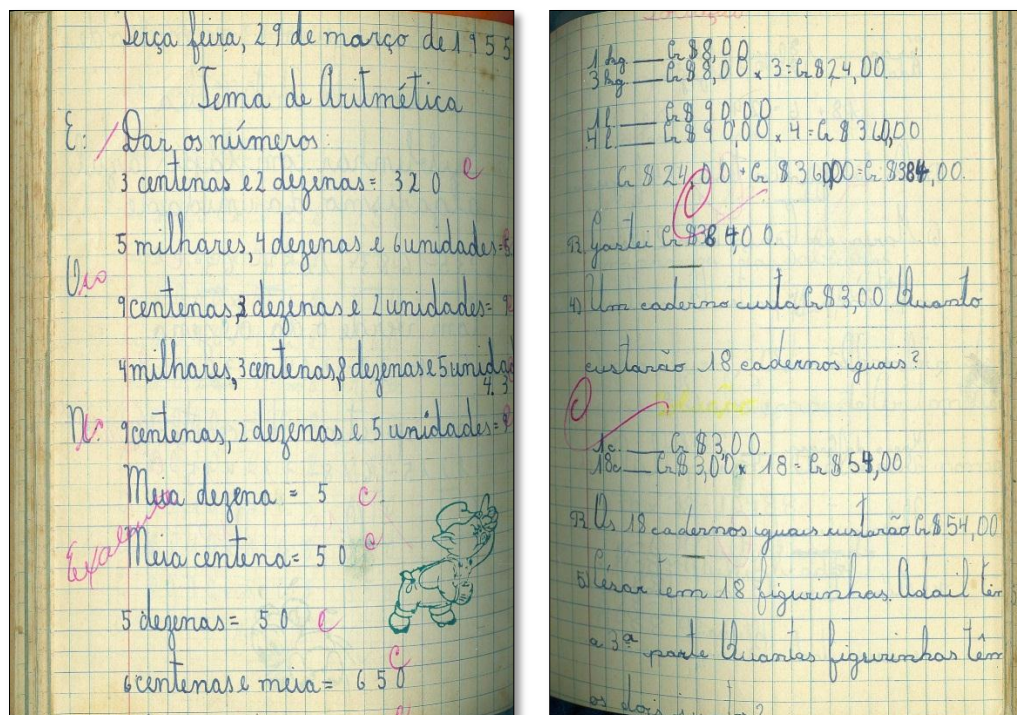 Terça feira, 29 de março de 1955
Tema de Aritmética
Dar os números:
3 centenas e 2 dezenas = 320
5 milhares, 4 dezenas e 6 unidades =
9 centenas, 3 dezenas e 2 unidades = 9
4 milhares, 3 centenas, 8 dezenas e 5 unida
4.3
9 centenas, 2 dezenas e 5 unidades = 9
Meia dezena = 5 c
Meia centena = 50 c
5 dezenas = 50 c
6 centenas e meia = 650
1 kg. — Cr$8,00
3 kg. — Cr$8,00 x 3 = Cr$24,00.
1 l. — Cr$90,00
4 l. — Cr$90,00 x 4 = Cr$360,00
Cr$24,00 + Cr$360,00 = Cr$384,00.
R. Gastei Cr$384,00.
4) Um caderno custa Cr$3,00. Quanto
custarão 18 cadernos iguais?
1c. — Cr$3,00
18c — Cr$3,00 x 18 = Cr$54,00
R. Os 18 cadernos iguais custarão Cr$54,00
5) César tem 18 figurinhas. Adail tem
a 3ª parte Quantas figurinhas têm
os dois